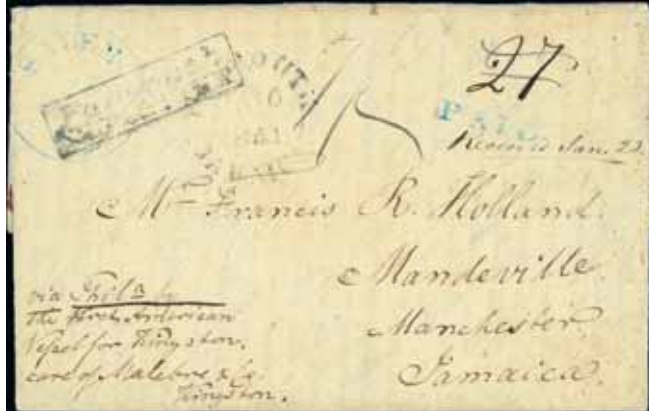 27
PAID
Received Jan. 23.
Mr Francis R. Holland.
Mandeville
Manchester
Jamaica.
via Phila by
the first American
Vessel for Kingston.
care of Malebre & Co.
Kingston.